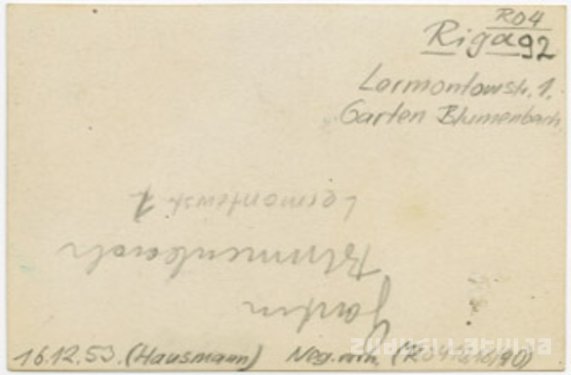 R04
Riga 92
Lermontowstr. 1.
Garten Blumenbach
Lermontowstr. 1
Blumenbach
Garten
16.12.53. (Hausmann) Neg. vorh. (R04